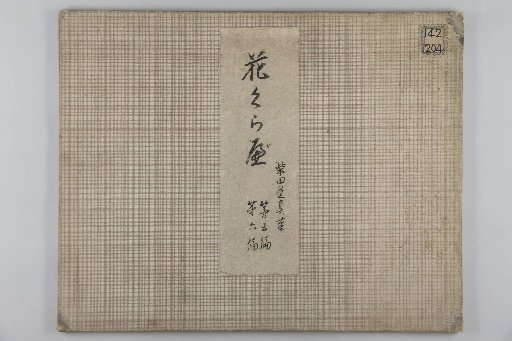 花くら
柴田是真筆
第五編
第六編
142
204